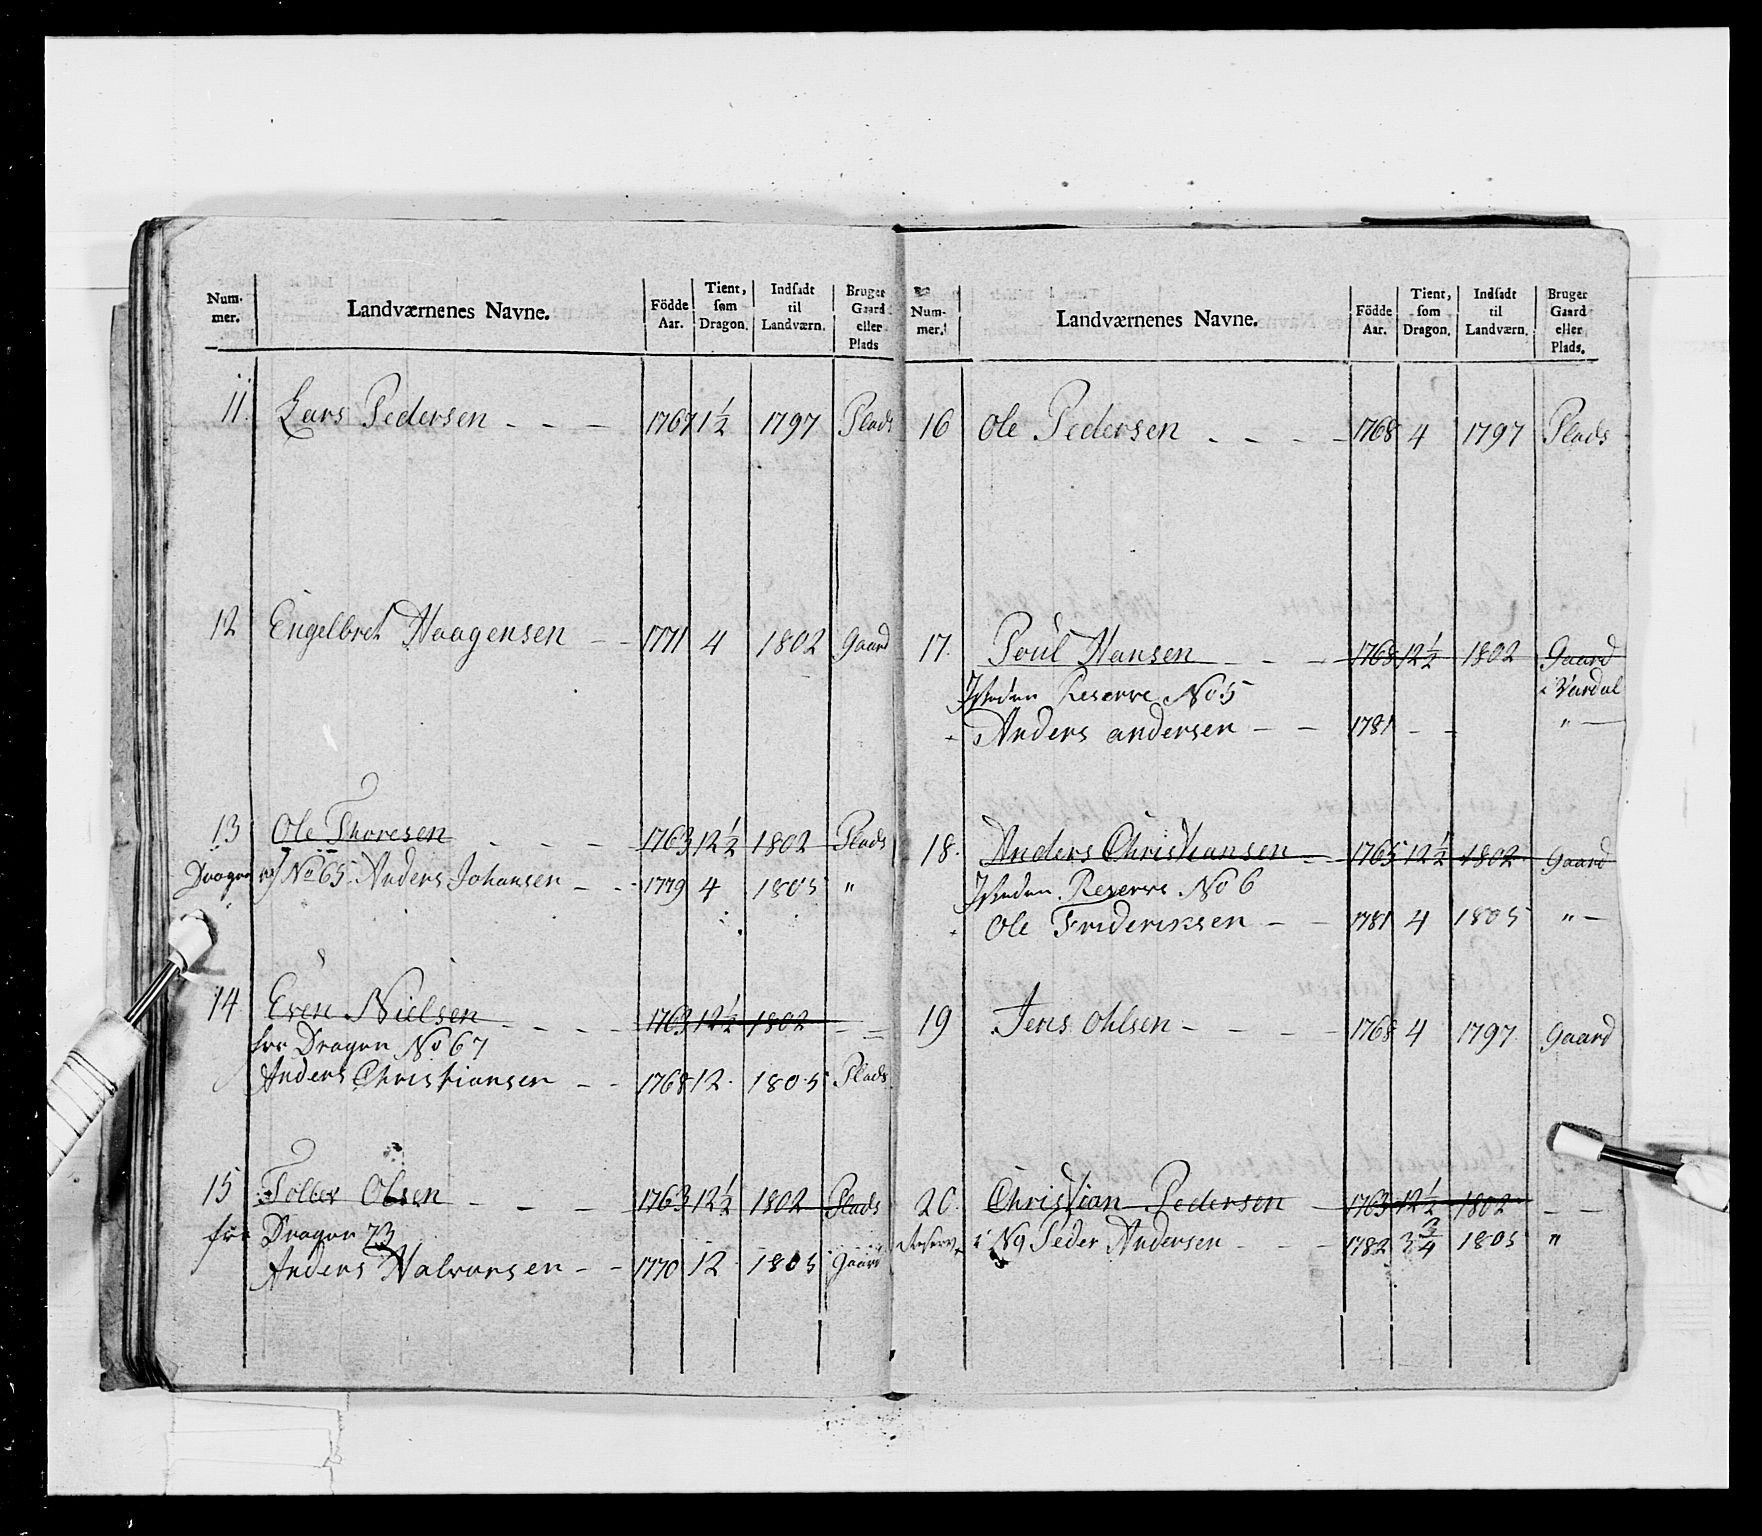 Num-
mer.
Landværnenes Navne.
Födde
Aar.
Tient,
som
Dragon.
Indsadt
til
Landværn.
Bruger
Gaard
eller
Plads
11. Lars Pedersen - - - 1767 1½ 1797 Plads
12 Engelbret Haagensen - - 1771 4 1802 Gaard
13 Ole Thoresen - - - 1763 12½ 1802 Plads
No 65 Anders Johansen - - 1779 4 1805 "
14 Even Nielsen - - - - 1763 12½ 1802 - -
fra Dragon No 67
Anders Christiansen - - 1768 12 1805 Plads
15 Olsen - - - 1763 12½ 1802 Plads
fra Dragon 73
Anders Halvorsen - - 1770 12 1805 Gaard
Num-
mer.
Landværnenes Navne.
Födde
Aar.
Tient,
som
Dragon.
Indsadt
til
Landværn.
Bruger
Gaard
eller
Plads.
16 Ole Pedersen - - - - 1768 4 1797 Plads
17. Poul Hansen - - - 1763 12½ 1802 Gaard
Reserve No 5 i Vardal
Anders andersen - - 1781 - - " -
18. Anders Christiansen - 1765 12½ 1802 Gaard
Reserve No 6
Ole Frideriksen - - 1781 4 1805 " -
19 Jens Ohlsen - - - - 1768 4 1797 Gaard
20. Christian Pedersen - 1763 12½ 1802 - -
N9 Peder Andersen - - - 1782 3¾ 1805 "